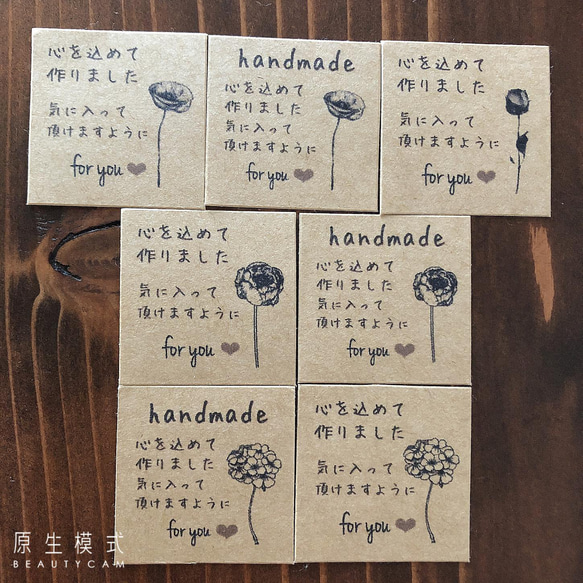 心を込めて
作りました
気に入って
頂けますように
for you
handmade
心を込めて
作りました
気に入って
頂けますように
for you
心を込めて
作りました
気に入って
頂けますように
for you
心を込めて
作りました
気に入って
頂けますように
for you
handmade
心を込めて
作りました
気に入って
頂けますように
for you
handmade
心を込めて
作りました
気に入って
頂けますように
for you
心を込めて
作りました
気に入って
頂けますように
for you
原生模式
BEAUTYCAM